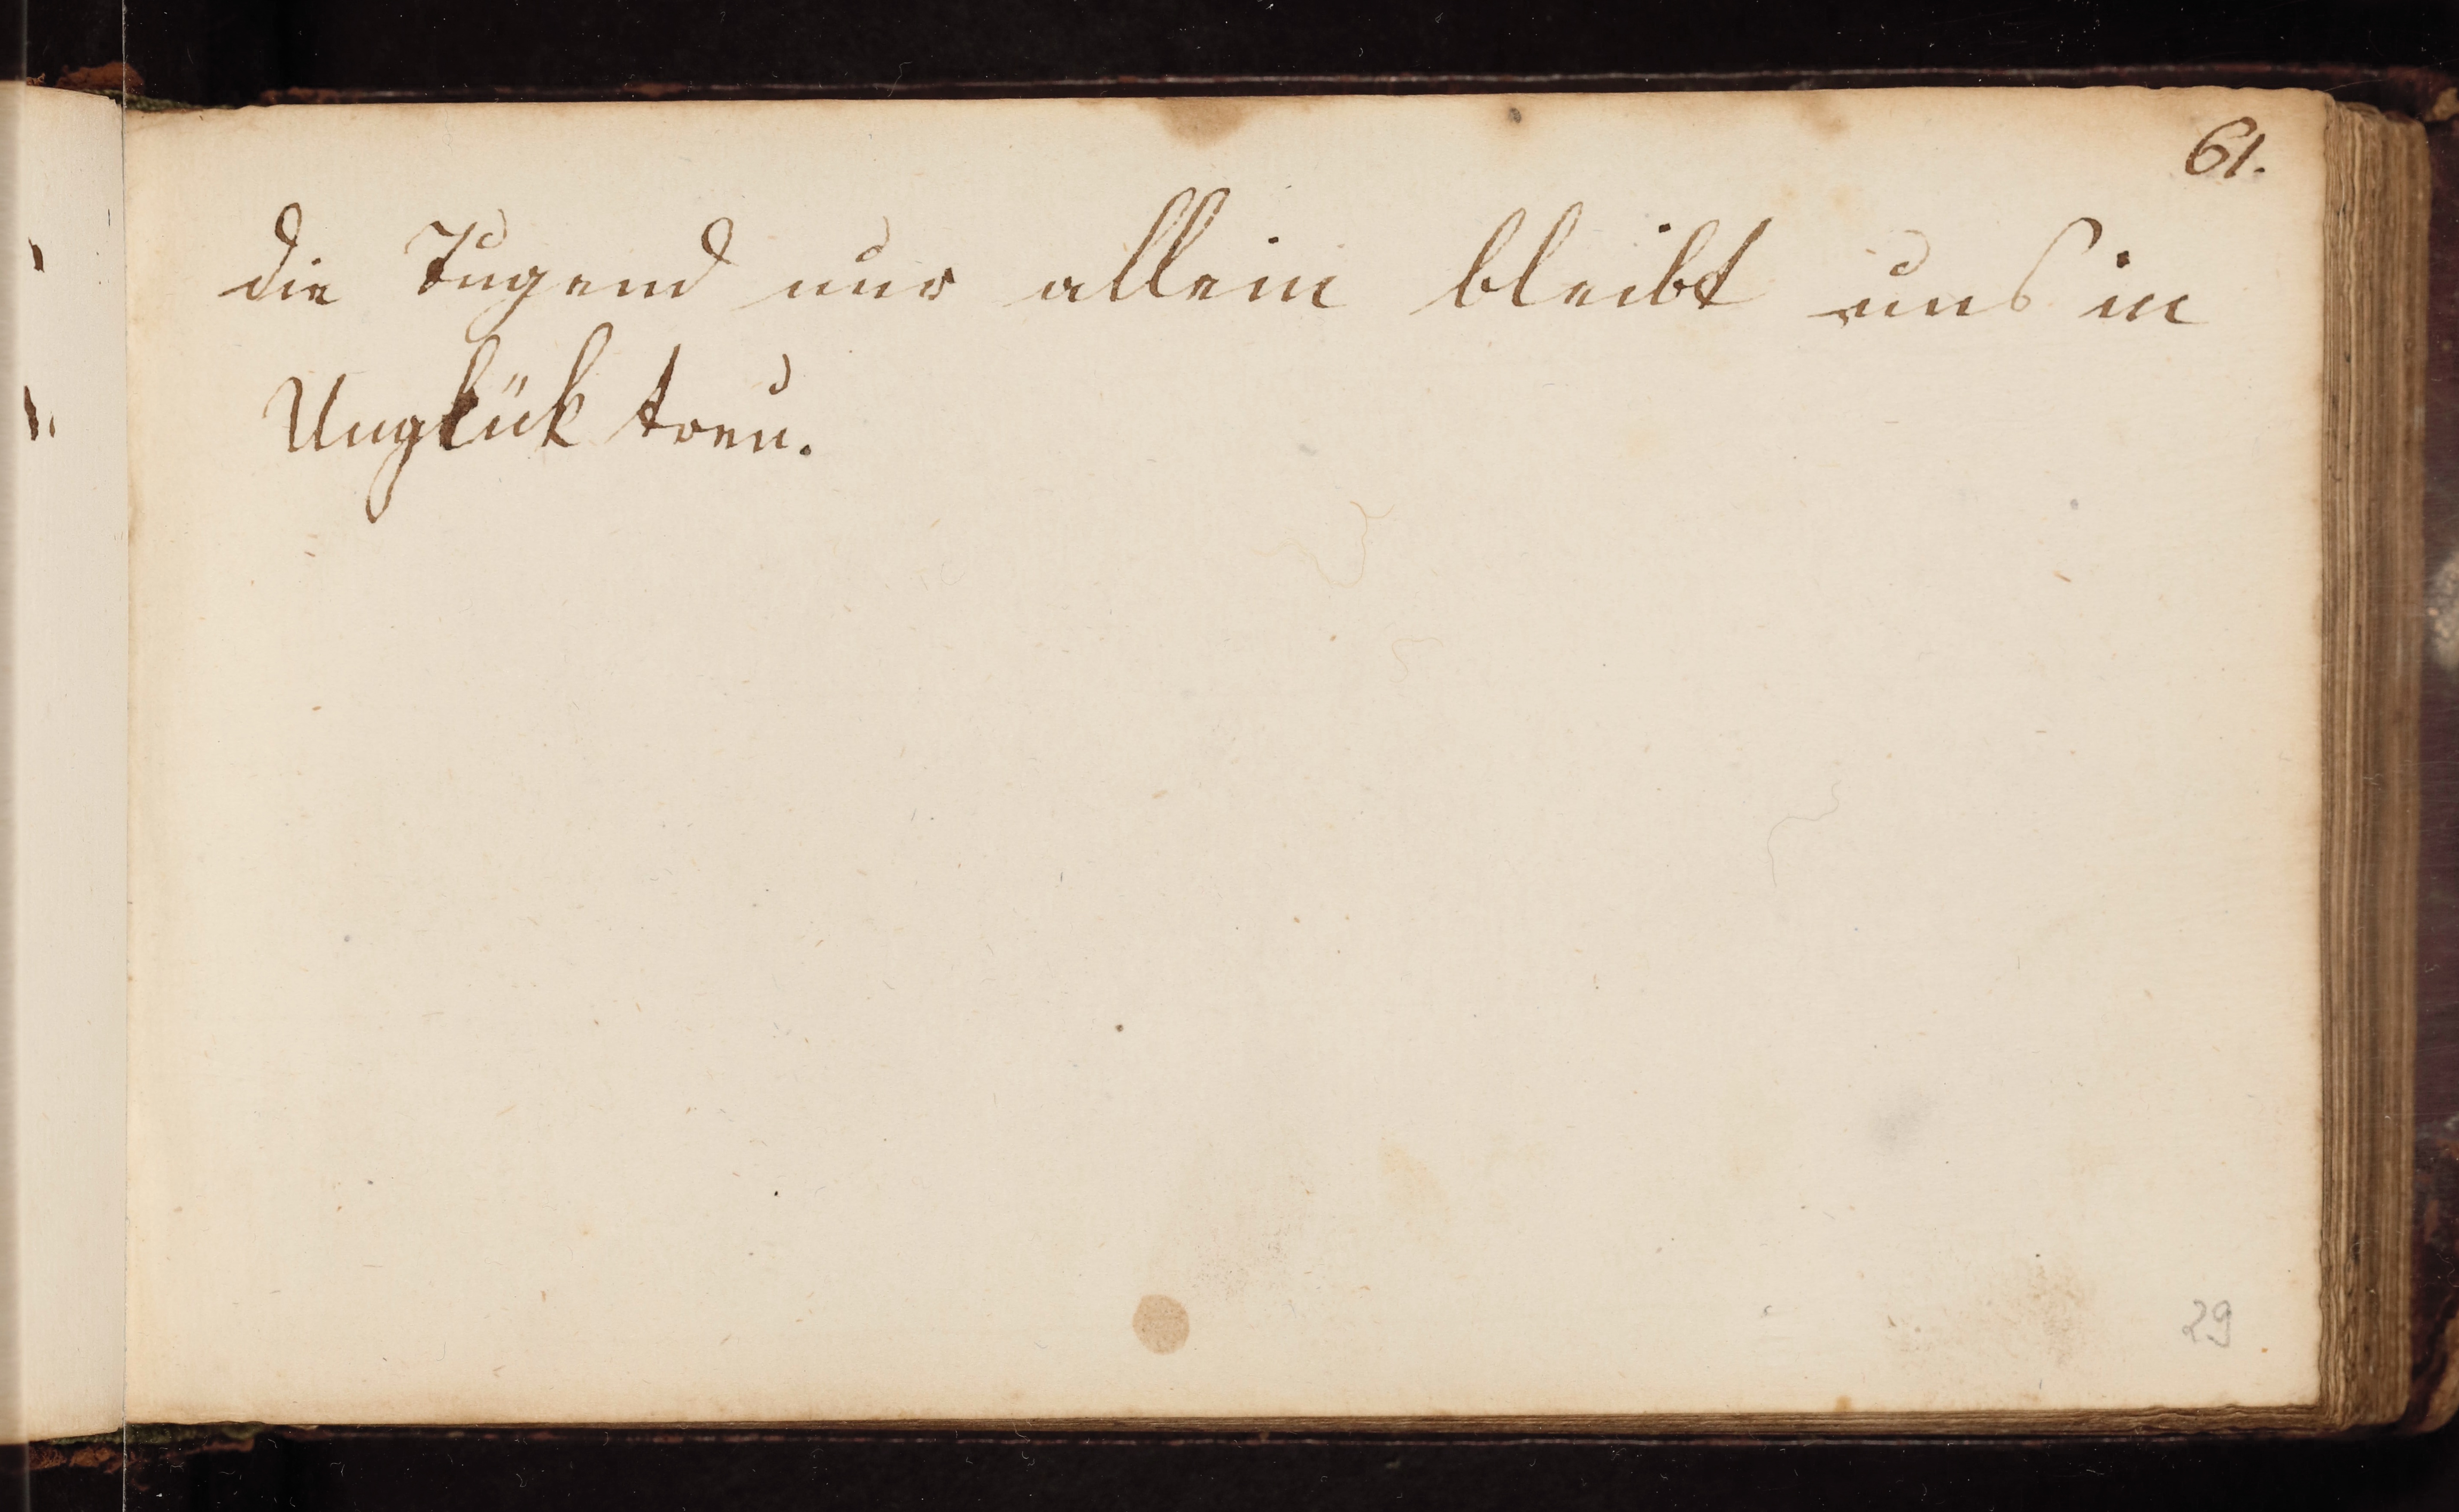 61.
die Tugend nur allein bleibt uns in
Unglük treu.
29